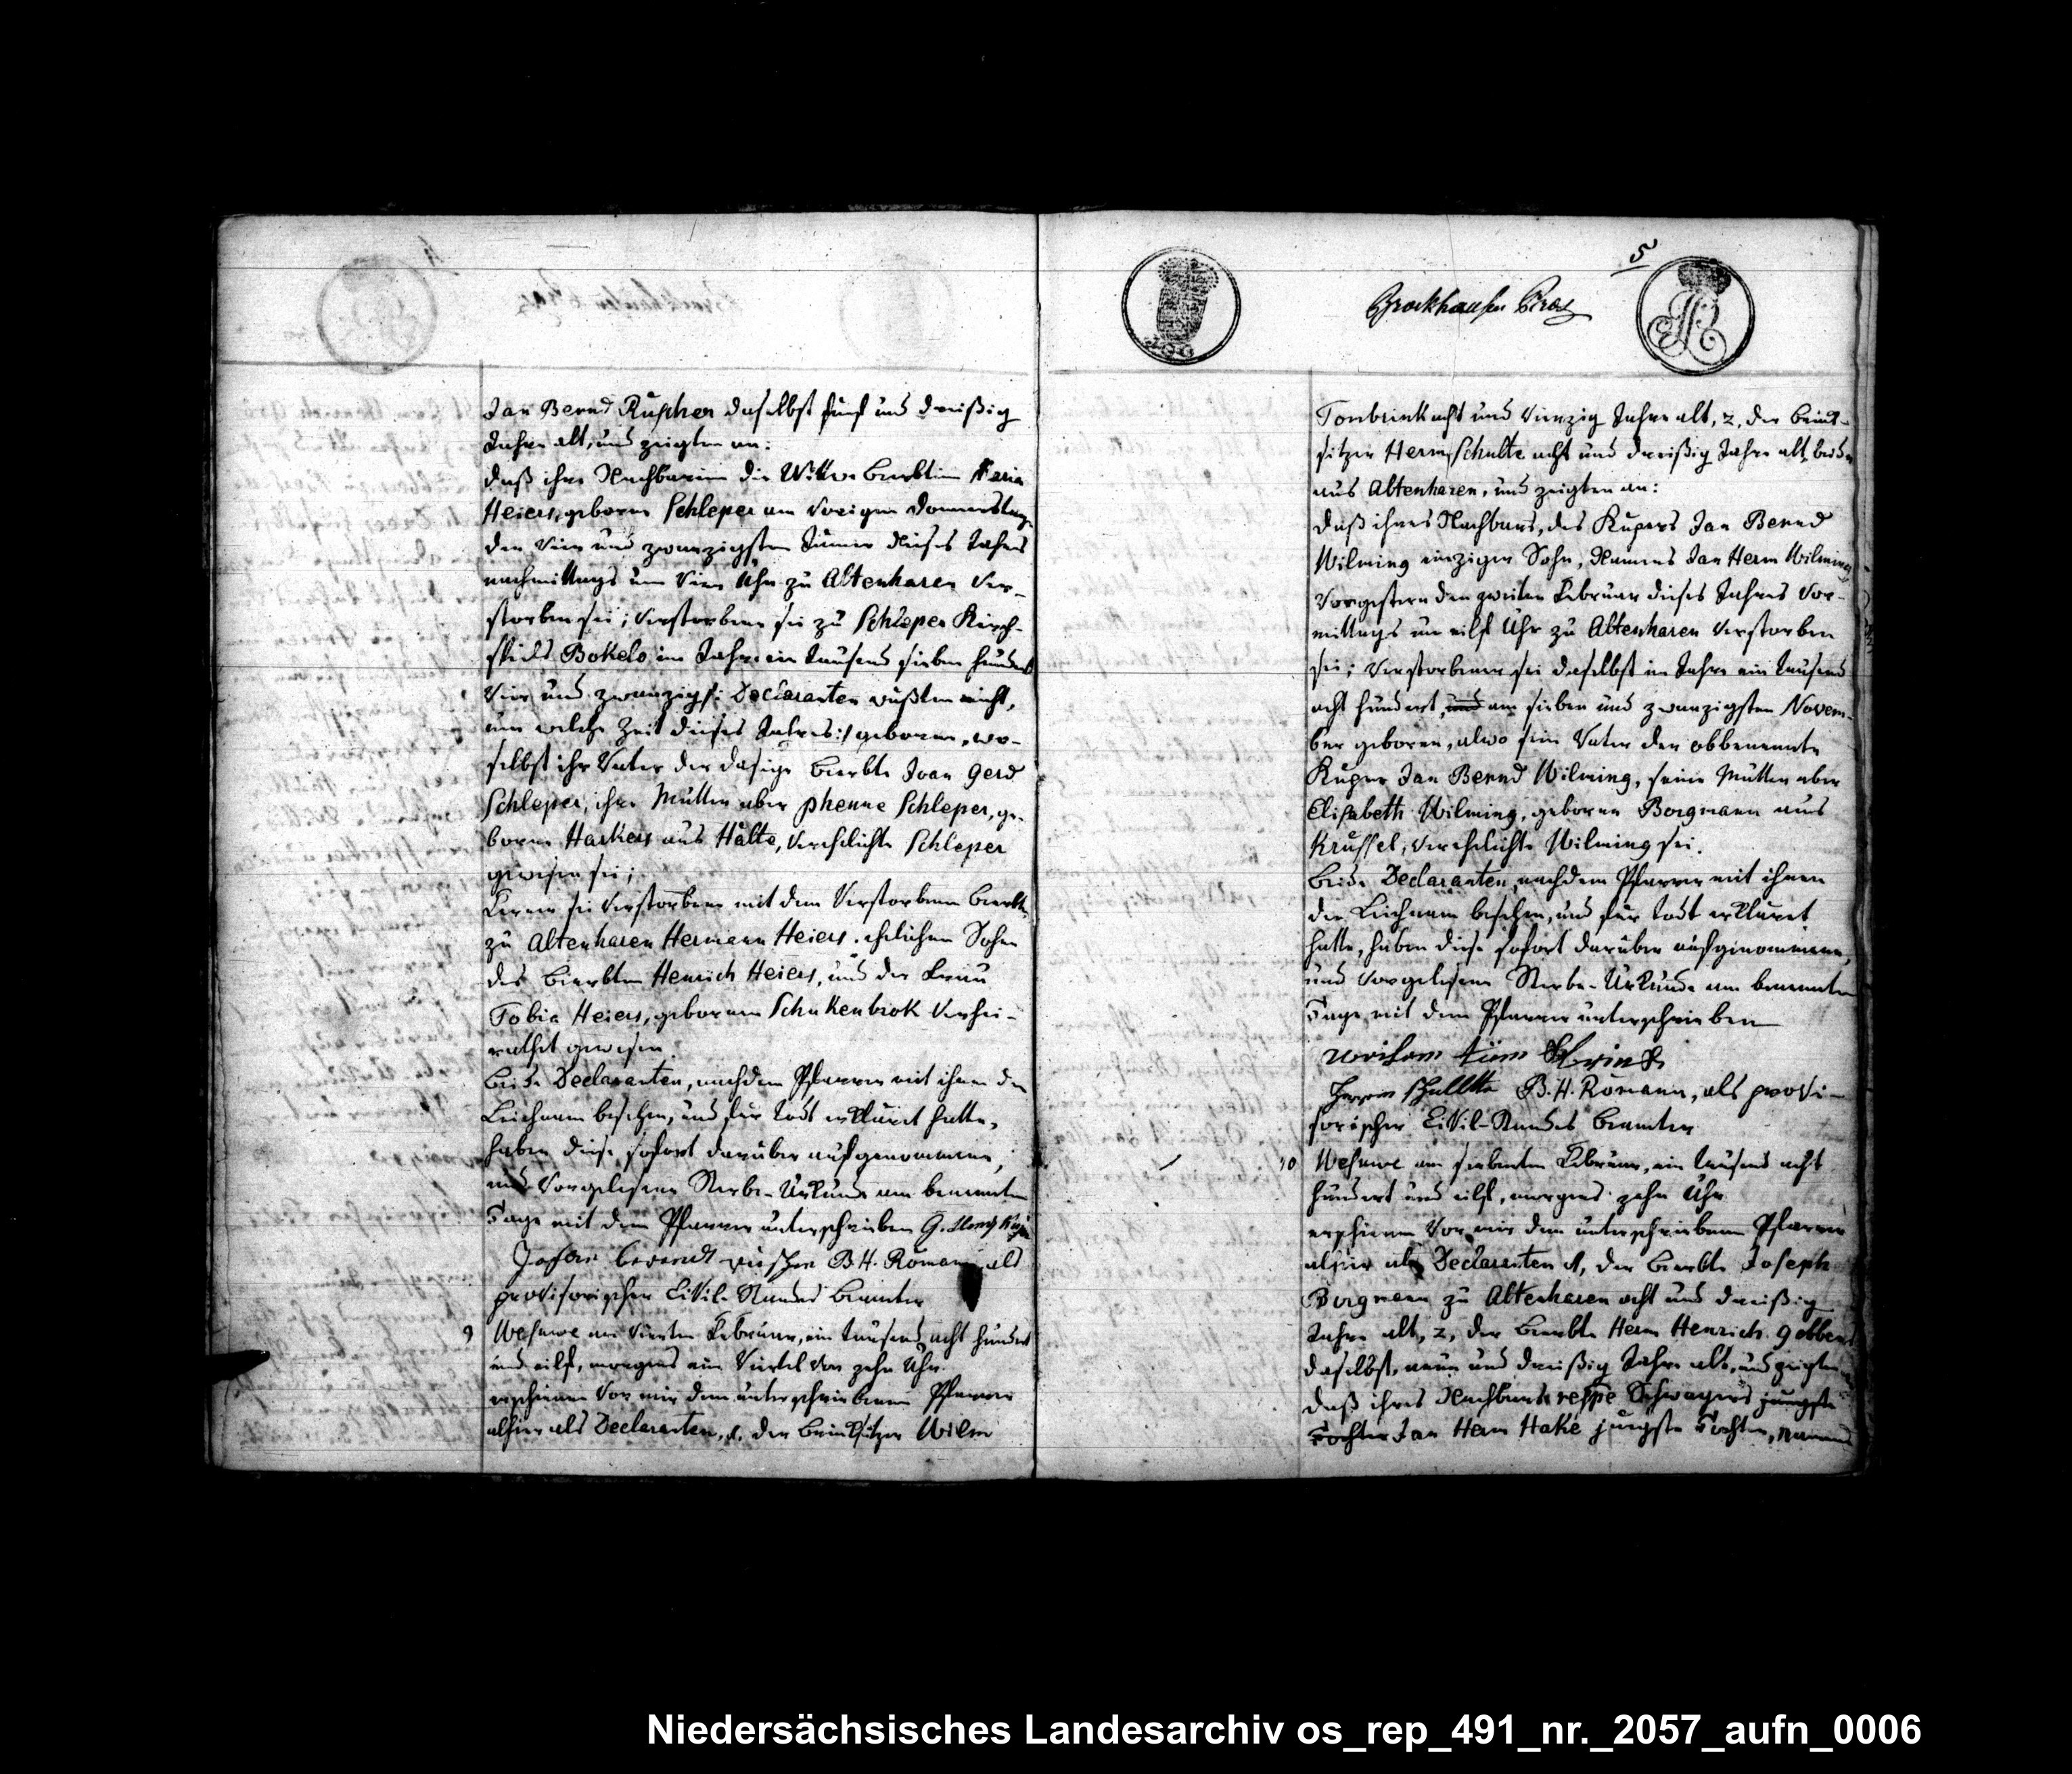 Jan Bernd Ruscher daselbst fünf und dreißig
Jahre alt, und zeigten an:
daß ihre Nachbarinn die Wittwe Beerbtinn Maria
Heiers, geborne Schleper am vorigen Donnerstage
den vier und zwanzigsten Jänner dieses Jahres
nachmittags um vier Uhr zu Altenharen ver-
storben sei; verstorbene sei zu Schleper Kirch-
spiels Bokelo im Jahre ein tausend sieben hundert
vier und zwanzig /: Declaranten wußten nicht,
um welche Zeit dieses Jahres :/ geboren, wo-
selbst ihr Vater der dasige Beerbte Joan Gerd
Schleper, ihre Mutter aber Phenne Schleper, ge-
borne Harkers aus Halte, verehlichte Schleper
gewesen sei;
Ferner sei verstorbene mit dem verstorbenen Beerbten
zu Altenharen Hermann Heiers, ehelichen Sohn
des Beerbten Henrich Heiers, und der Frau
Tobia Heiers, gebornen Schukenbrok verhei-
rathet gewesen.
Beide Declaranten, nachdem Pfarrer mit ihnen den
Leichnam besehen, und für todt erkläret hatte,
haben diese sofort darüber aufgenommene,
und vorgelesene Sterbe-Urkunde am benannten
Tage mit dem Pfarrer unterschrieben G.
Johan berendt ruscher B. H. Römann als
provisorischer Civil-Standes Beamter
9 Wesuwe am vierten Februar, ein tausend acht hundert
und eilf, morgens ein Viertel vor zehn Uhr
erschienen vor mir dem unterschriebenen Pfarrer
alhier als Declaranten, 1, der Brinksitzer Wilm
5
Brockhausen
200
Tonbrink acht und vierzig Jahre alt, 2, der Brink-
sitzer Herm Schulte acht und dreißig Jahre alt, beide
aus Altenharen, und zeigten an:
daß ihres Nachbars, des Kupers Jan Bernd
Wilming einziger Sohn, Namens Jan Herm Wilming
vorgestern den zweiten Februar dieses Jahres vor-
mittags um eilf Uhr zu Altenharen verstorben
sei; verstorbener sei daselbst im Jahre ein tausend
acht hundert, und am sieben und zwanzigsten Novem-
ber geboren, alwo sein Vater der obbenannte
Kuper Jan Bernd Wilming, seine Mutter aber
Elisabeth Wilming, geborne Borgmann aus
Krüssel, verehlichte Wilming sei.
Beide Declaranten, nachdem Pfarrer mit ihnen
den Leichnam besehen, und für todt erkläret
hatte, haben diese sofort darüber aufgenommene,
und vorgelesene Sterbe-Urkunde am benannten
Tage mit dem Pfarrer unterschrieben
B. H. Römann, als provi-
sorischer Civil-Standes Beamter
10 Wesuwe am siebenten Februar, ein tausend acht
hundert und eilf, morgens zehn Uhr
erschienen vor mir dem unterschriebenen Pfarrer
alhier als Declaranten 1, der Beerbte Joseph
Borgmann zu Altenharen acht und dreißig
Jahre alt, 2, der Beerbte Herm Henrich Gebben
daselbst, neun und dreißig Jahre alt, und zeigten an
daß ihres Nachbars respe Schwagers jüngste
Tochter Jan Herm Hake jüngste Tochter, Namens
Niedersächsisches Landesarchiv os_rep_491_nr._2057_aufn_0006